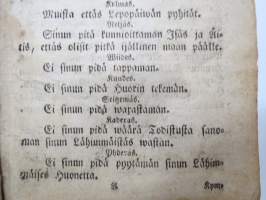 Kolmas.
Muista ettäs Lepopäiwän pyhität.
Neljäs.
Sinun pitä kunnioittaman Isäs ja Äi-
tis, ettäs olisit pitkä ijällinen maan päälle.
Wiides.
Ei sinun pidä tappaman.
Kuudes.
Ei sinun pidä Huorin tekemän.
Seitzemäs.
Ei sinun pidä warastaman.
Kadexas.
Ei sinun pidä wäärä Todistusta sano-
man sinun Lähimmäistäs wastan.
Yhdexäs.
Ei sinun pidä pyytämän sinun Lähim-
mäises Huonetta.
Kym-